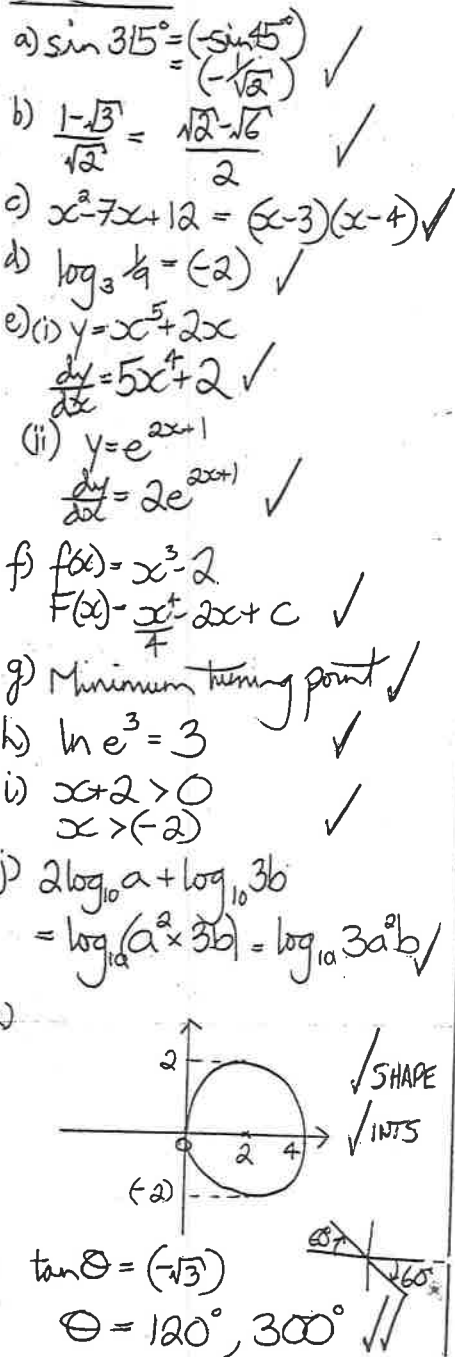 a) sin 315° = (-sin45°)
= (-1/√2)
b) (1-√3)/√2 = (√2-√6)/2
c) x²-7x+12 = (x-3)(x-4)
d) log₃ 1/9 = (-2)
e)(i) y=x⁵+2x
dy/dx = 5x⁴+2
(ii) y=e^(2x+1)
dy/dx = 2e^(2x+1)
f) f(x)= x³-2
F(x)= x⁴/4 - 2x + c
g) Minimum turning point
h) ln e³ = 3
i) x+2 > 0
x > (-2)
j) 2log₁₀a + log₁₀3b
= log₁₀(a² × 3b) = log₁₀ 3a²b
2
SHAPE
INTS
0 2 4
(-2)
60° 60°
tan θ = (-√3)
θ = 120°, 300°